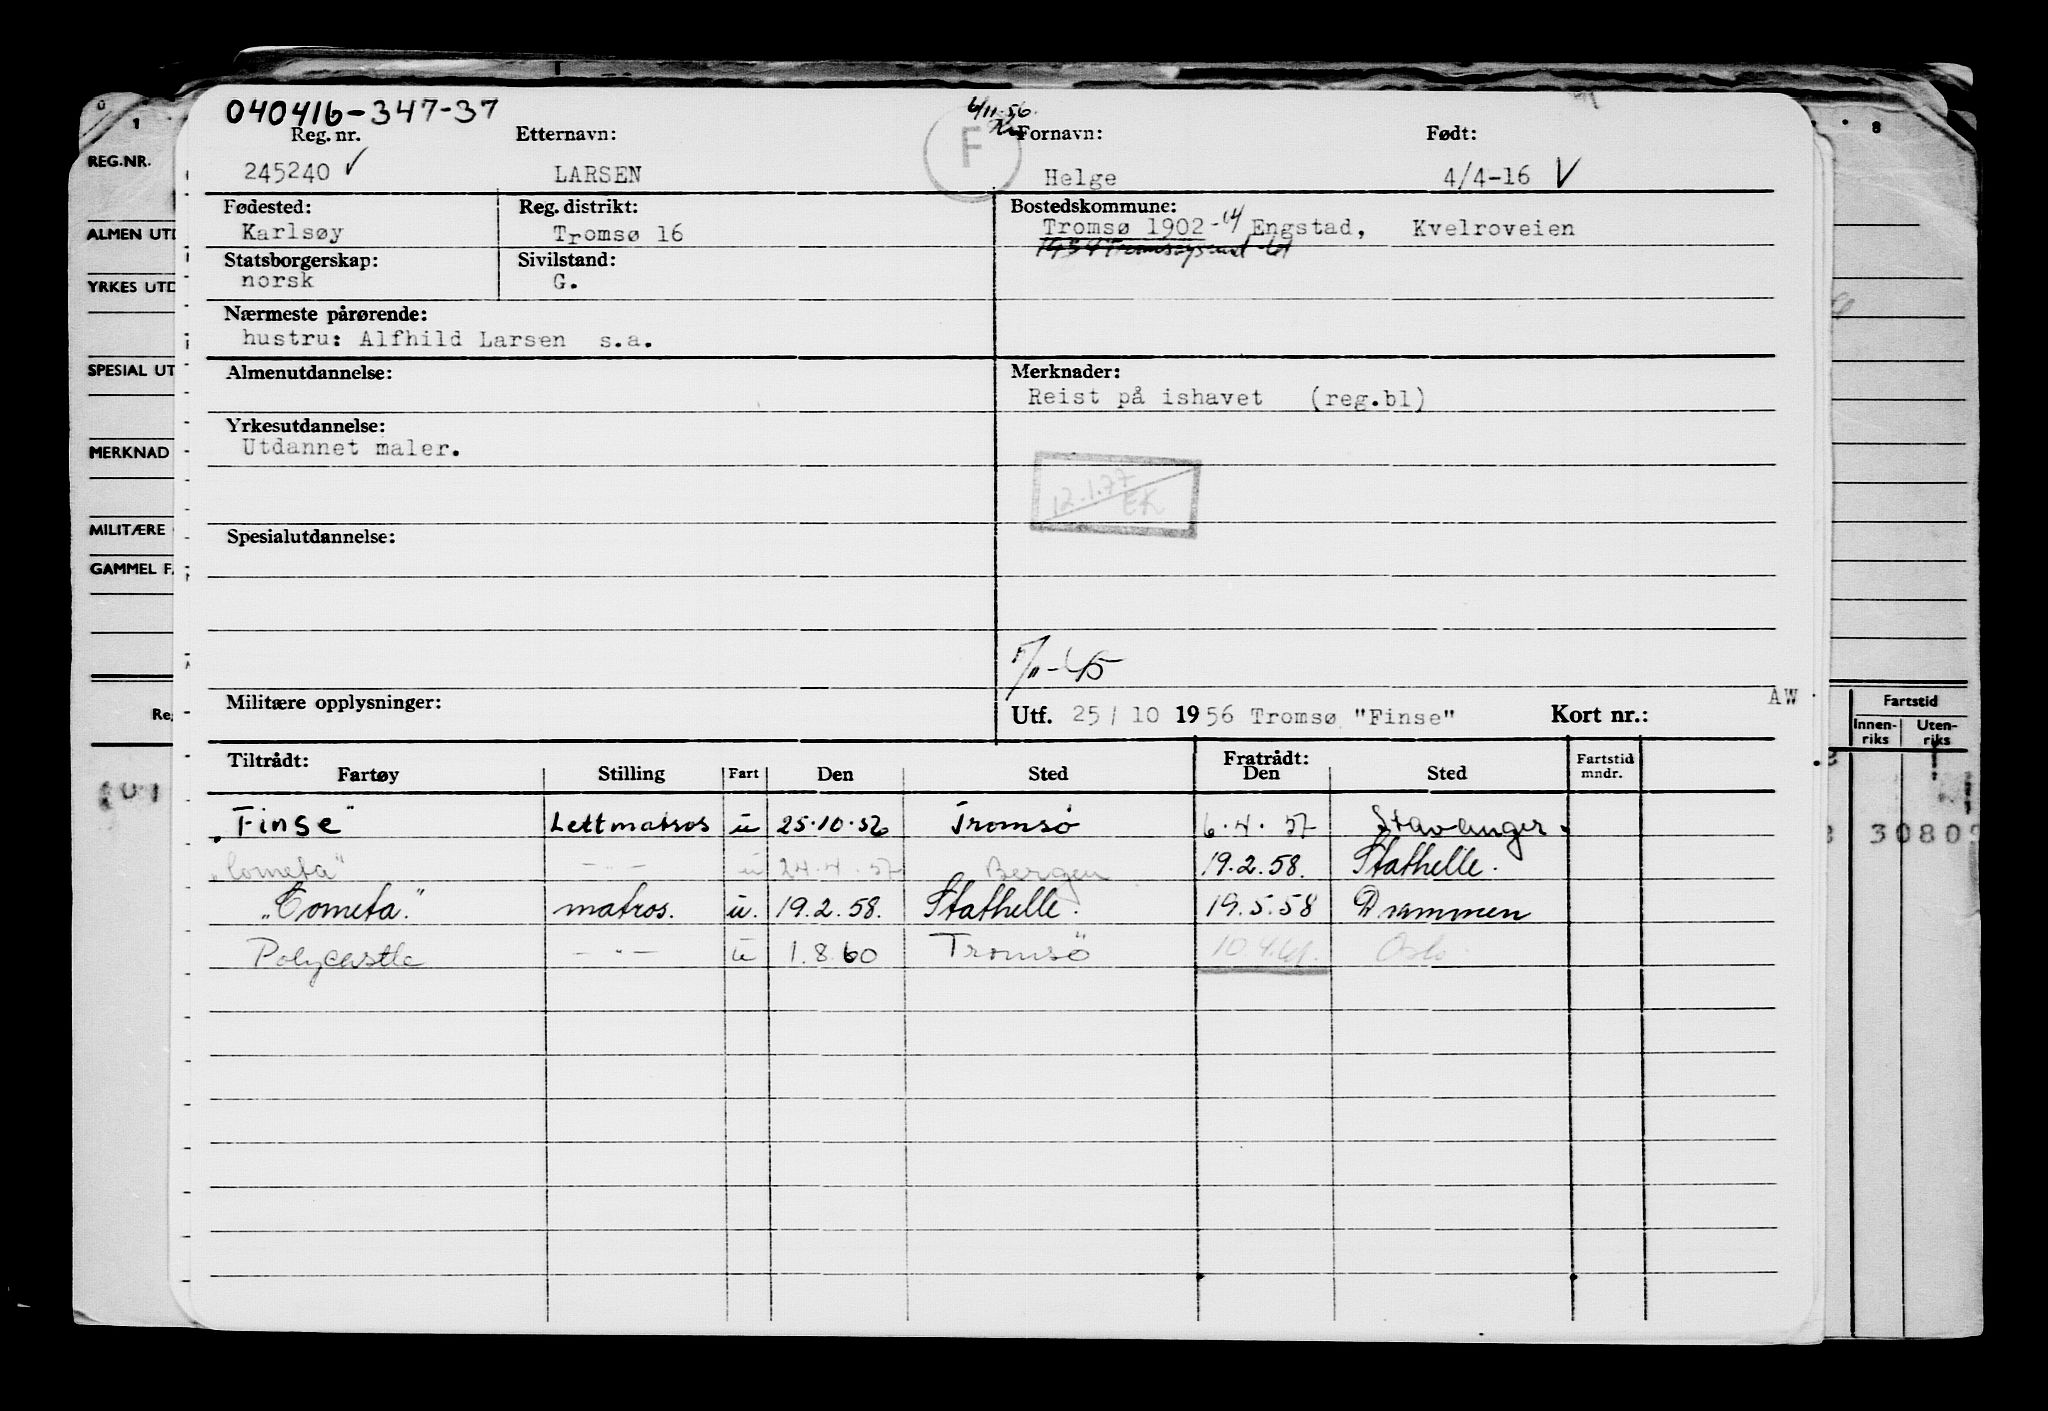 040416-347-37
6/11-56.
Reg. nr. Etternavn: F Fornavn: Født:
245240 ✓ LARSEN Helge 4/4-16 V
Fødested: Reg. distrikt: Bostedskommune:
Karlsøy Tromsø 16 Tromsø 1902-14 Engstad, Kvelroveien
1934 Tromsøysund
Statsborgerskap: Sivilstand:
norsk G.
Nærmeste pårørende:
hustru: Alfhild Larsen s.a.
Almenutdannelse: Merknader:
Reist på ishavet (reg.bl)
Yrkesutdannelse:
Utdannet maler.
12.1.77
EK
Spesialutdannelse:
Militære opplysninger:
AW
Utf. 25/10 1956 Tromsø "Finse" Kort nr.:
Tiltrådt: Fratrådt:
Fartøy Stilling Fart Den Sted Den Sted Fartstid mndr.
„Finse" Lettmatros u 25.10.56 Tromsø 6.4.57 Stavanger.
„Cometa" -"- u 24.4.57 Bergen 19.2.58. Stathelle.
„Cometa." matros. u. 19.2.58. Stathelle. 19.5.58 Drammen
Polycastle -"- u 1.8.60 Tromsö 10.4.61. Oslo.
1
REG.NR.
ALMEN UTD
YRKES UTD
SPESIAL UT
MERKNAD
MILITÆRE
GAMMEL FA
Re
8
Fartstid
Innen-riks Uten-riks
3080